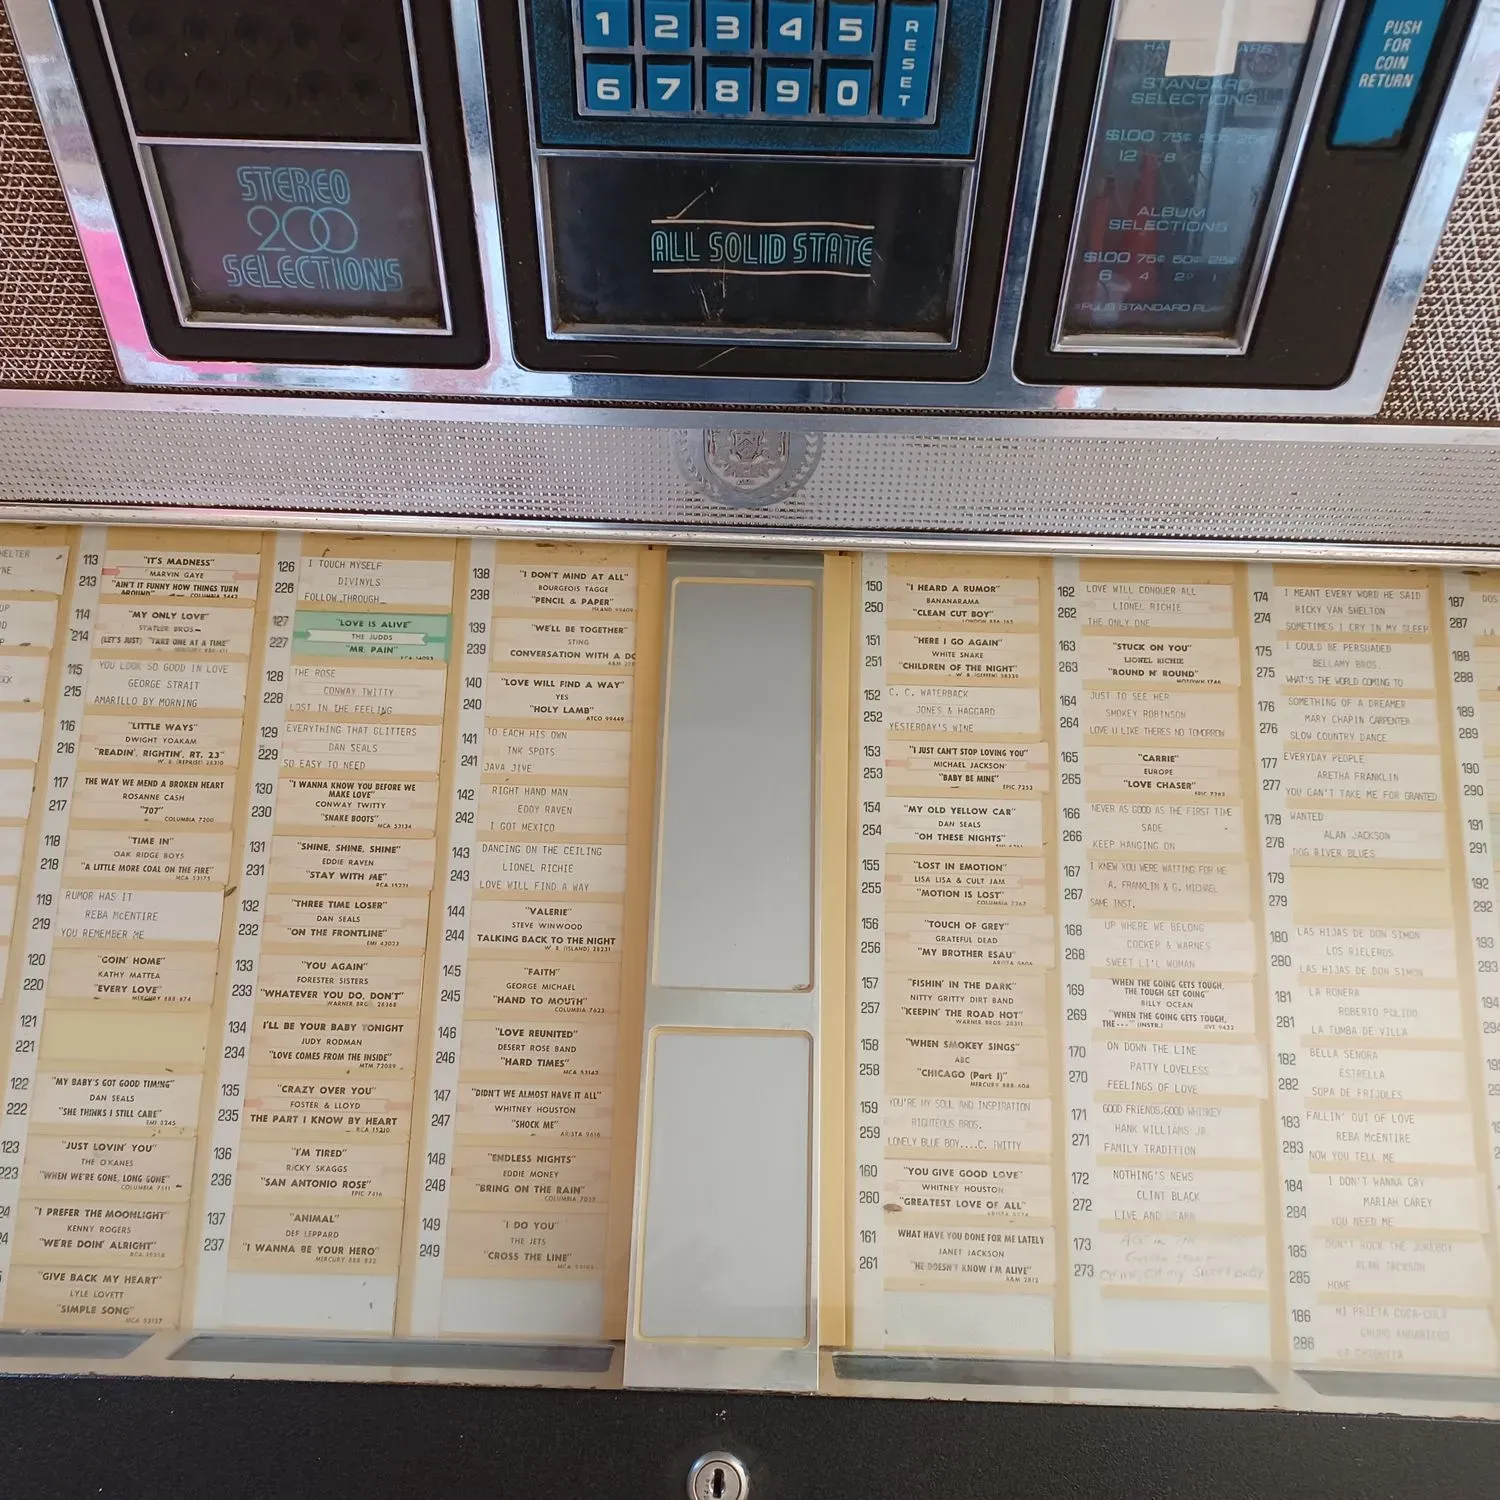 1 2 3 4 5
6 7 8 9 0
RESET
PUSH
FOR
COIN
RETURN
STEREO
200
SELECTIONS
ALL SOLID STATE
STANDARD
SELECTIONS
$1.00 75¢ 50¢ 25¢
12 8
ALBUM
SELECTIONS
$1.00 75¢ 50¢ 25¢
6 4 2 1
PLUS STANDARD
113 "IT'S MADNESS"
MARVIN GAYE
213 "AIN'T IT FUNNY HOW THINGS TURN
AROUND" COLUMBIA
114 "MY ONLY LOVE"
STATLER BROS.
214 (LET'S JUST) "TAKE ONE AT A TIME"
115 YOU LOOK SO GOOD IN LOVE
GEORGE STRAIT
215 AMARILLO BY MORNING
116 "LITTLE WAYS"
DWIGHT YOAKAM
216 "READIN', RIGHTIN', RT. 23"
W. B. (REPRISE) 28310
117 THE WAY WE MEND A BROKEN HEART
ROSANNE CASH
217 "707"
COLUMBIA 7200
118 "TIME IN"
OAK RIDGE BOYS
218 "A LITTLE MORE COAL ON THE FIRE"
MCA 53175
119 RUMOR HAS IT
REBA McENTIRE
219 YOU REMEMBER ME
120 "GOIN' HOME"
KATHY MATTEA
220 "EVERY LOVE"
MERCURY 888-874
121
221
122 "MY BABY'S GOT GOOD TIMING"
DAN SEALS
222 "SHE THINKS I STILL CARE"
EMI 8245
123 "JUST LOVIN' YOU"
THE O'KANES
223 "WHEN WE'RE GONE, LONG GONE"
COLUMBIA
24 "I PREFER THE MOONLIGHT"
KENNY ROGERS
"WE'RE DOIN' ALRIGHT"
"GIVE BACK MY HEART"
LYLE LOVETT
"SIMPLE SONG"
MCA 53157
126 I TOUCH MYSELF
DIVINYLS
226 FOLLOW THROUGH
127 "LOVE IS ALIVE"
THE JUDDS
227 "MR. PAIN"
128 THE ROSE
CONWAY TWITTY
228 LOST IN THE FEELING
129 EVERYTHING THAT GLITTERS
DAN SEALS
229 SO EASY TO NEED
130 "I WANNA KNOW YOU BEFORE WE
MAKE LOVE"
CONWAY TWITTY
230 "SNAKE BOOTS"
MCA 53134
131 "SHINE, SHINE, SHINE"
EDDIE RAVEN
231 "STAY WITH ME"
RCA 15221
132 "THREE TIME LOSER"
DAN SEALS
232 "ON THE FRONTLINE"
EMI 43023
133 "YOU AGAIN"
FORESTER SISTERS
233 "WHATEVER YOU DO, DON'T"
WARNER BRO. 28368
134 I'LL BE YOUR BABY TONIGHT
JUDY RODMAN
234 "LOVE COMES FROM THE INSIDE"
MTM 72089
135 "CRAZY OVER YOU"
FOSTER & LLOYD
235 THE PART I KNOW BY HEART
RCA 15210
136 "I'M TIRED"
RICKY SKAGGS
236 "SAN ANTONIO ROSE"
EPIC 7416
137 "ANIMAL"
DEF LEPPARD
237 "I WANNA BE YOUR HERO"
MERCURY 888 832
138 "I DON'T MIND AT ALL"
BOURGEOIS TAGGE
238 "PENCIL & PAPER"
ISLAND 99409
139 "WE'LL BE TOGETHER"
STING
239 CONVERSATION WITH A DO
140 "LOVE WILL FIND A WAY"
YES
240 "HOLY LAMB"
ATCO 99449
141 TO EACH HIS OWN
INK SPOTS
241 JAVA JIVE
142 RIGHT HAND MAN
EDDY RAVEN
242 I GOT MEXICO
143 DANCING ON THE CEILING
LIONEL RICHIE
243 LOVE WILL FIND A WAY
144 "VALERIE"
STEVE WINWOOD
244 TALKING BACK TO THE NIGHT
W. B. (ISLAND) 28231
145 "FAITH"
GEORGE MICHAEL
245 "HAND TO MOUTH"
COLUMBIA 7623
146 "LOVE REUNITED"
DESERT ROSE BAND
246 "HARD TIMES"
MCA 53142
147 "DIDN'T WE ALMOST HAVE IT ALL"
WHITNEY HOUSTON
247 "SHOCK ME"
ARISTA 9616
148 "ENDLESS NIGHTS"
EDDIE MONEY
248 "BRING ON THE RAIN"
COLUMBIA 7035
149 "I DO YOU"
THE JETS
249 "CROSS THE LINE"
150 "I HEARD A RUMOR"
BANANARAMA
250 "CLEAN CUT BOY"
LONDON 886-165
151 "HERE I GO AGAIN"
WHITE SNAKE
251 "CHILDREN OF THE NIGHT"
W. B. (GEFFEN) 28339
152 C. C. WATERBACK
JONES & HAGGARD
252 YESTERDAY'S WINE
153 "I JUST CAN'T STOP LOVING YOU"
MICHAEL JACKSON
253 "BABY BE MINE"
EPIC 7253
154 "MY OLD YELLOW CAR"
DAN SEALS
254 "OH THESE NIGHTS"
155 "LOST IN EMOTION"
LISA LISA & CULT JAM
255 "MOTION IS LOST"
COLUMBIA 7267
156 "TOUCH OF GREY"
GRATEFUL DEAD
256 "MY BROTHER ESAU"
ARISTA 9606
157 "FISHIN' IN THE DARK"
NITTY GRITTY DIRT BAND
257 "KEEPIN' THE ROAD HOT"
WARNER BROS. 28311
158 "WHEN SMOKEY SINGS"
ABC
258 "CHICAGO (Part I)"
MERCURY 888-604
159 YOU'RE MY SOUL AND INSPIRATION
RIGHTEOUS BROS.
259 LONELY BLUE BOY....C. TWITTY
160 "YOU GIVE GOOD LOVE"
WHITNEY HOUSTON
260 "GREATEST LOVE OF ALL"
161 WHAT HAVE YOU DONE FOR ME LATELY
JANET JACKSON
261 "HE DOESN'T KNOW I'M ALIVE"
A&M 2812
162 LOVE WILL CONQUER ALL
LIONEL RICHIE
262 THE ONLY ONE
163 "STUCK ON YOU"
LIONEL RICHIE
263 "ROUND N' ROUND"
MOTOWN 1746
164 JUST TO SEE HER
SMOKEY ROBINSON
264 LOVE U LIKE THERES NO TOMORROW
165 "CARRIE"
EUROPE
265 "LOVE CHASER"
EPIC 7282
166 NEVER AS GOOD AS THE FIRST TIME
SADE
266 KEEP HANGING ON
167 I KNEW YOU WERE WAITING FOR ME
A. FRANKLIN & G. MICHAEL
267 SAME INST.
168 UP WHERE WE BELONG
COCKER & WARNES
268 SWEET LI'L WOMAN
169 "WHEN THE GOING GETS TOUGH,
THE TOUGH GET GOING"
BILLY OCEAN
269 "WHEN THE GOING GETS TOUGH,
THE---" (INSTR.) JIVE 9432
170 ON DOWN THE LINE
PATTY LOVELESS
270 FEELINGS OF LOVE
171 GOOD FRIENDS,GOOD WHISKEY
HANK WILLIAMS JR
271 FAMILY TRADITION
172 NOTHING'S NEWS
CLINT BLACK
272 LIVE AND LEARN
173
273
174 I MEANT EVERY WORD HE SAID
RICKY VAN SHELTON
274 SOMETIMES I CRY IN MY SLEEP
175 I COULD BE PERSUADED
BELLAMY BROS.
275 WHAT'S THE WORLD COMING TO
SOMETHING OF A DREAMER
MARY CHAPIN CARPENTER
276 SLOW COUNTRY DANCE
177 EVERYDAY PEOPLE
ARETHA FRANKLIN
277 YOU CAN'T TAKE ME FOR GRANTED
178 WANTED
ALAN JACKSON
278 DOG RIVER BLUES
179
279
180 LAS HIJAS DE DON SIMON
LOS RIELEROS
280 LAS HIJAS DE DON SIMON
181 LA RONERA
ROBERTO PULIDO
281 LA TUMBA DE VILLA
182 BELLA SENORA
ESTRELLA
282 SOPA DE FRIJOLES
183 FALLIN' OUT OF LOVE
REBA McENTIRE
283 NOW YOU TELL ME
184 I DON'T WANNA CRY
MARIAH CAREY
284 YOU NEED ME
185 DON'T ROCK THE JUKEBOX
ALAN JACKSON
285 HOME
186 MI PRIETA COCA-COLA
GRUPO
286 LA CHIQUITA
187
287
188
288
189
289
190
290
191
291
192
292
193
293